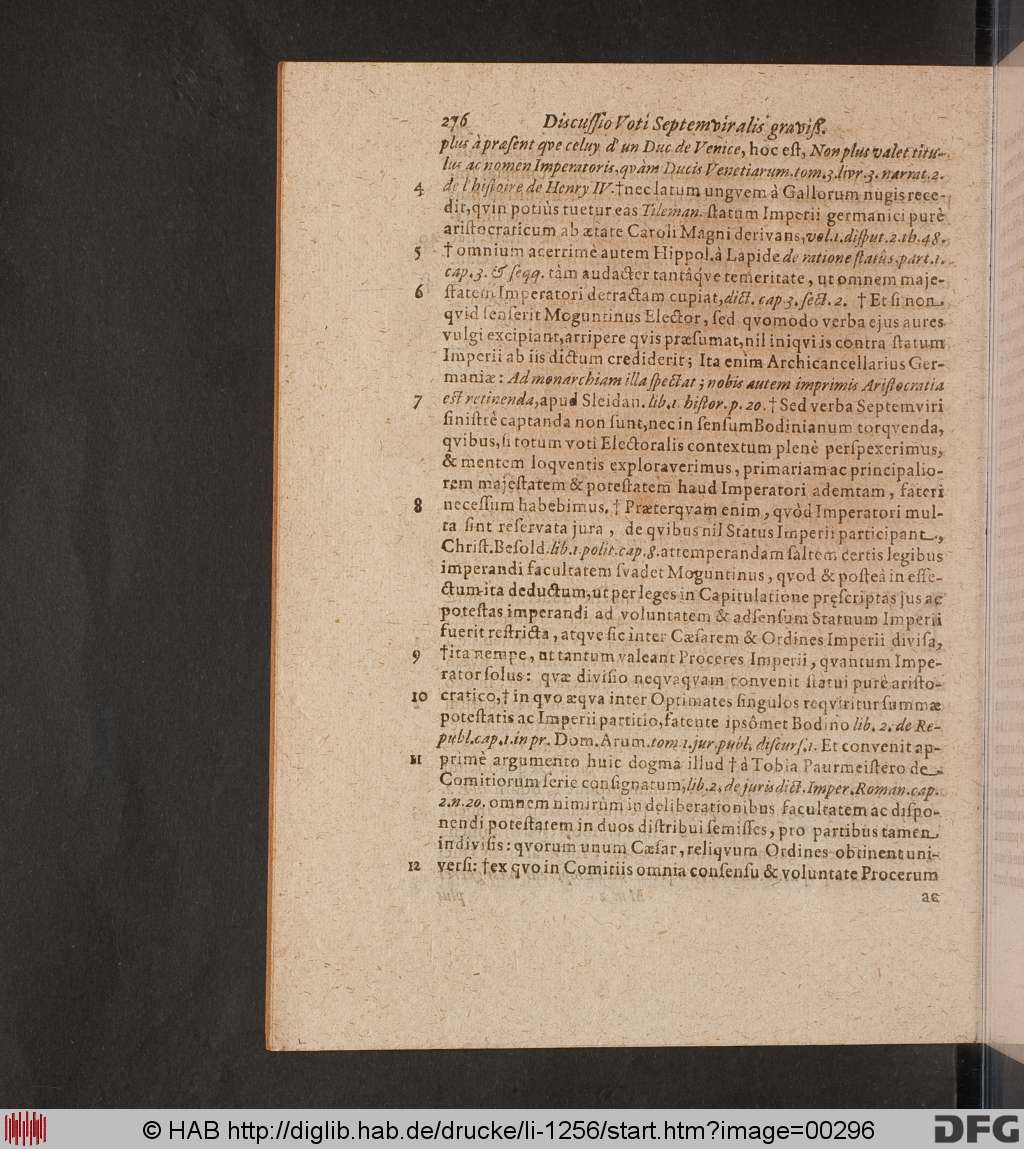 276 Discussio Voti Septemviralis graviss.
plus à præsent qve celuy d'un Duc de Venice, hoc est, Non plus valet titu-
lus ac nomen Imperatoris, qvàm Ducis Venetiarum. tom. 3. livr. 3. narrat. 2.
4 de l'histoire de Henry IV. † nec latum ungvem à Gallorum nugis rece-
dit, qvin potiùs tuetur eas Tileman. statum Imperii germanici purè
aristocraticum ab ætate Caroli Magni derivans, vol. 1. disput. 2. th. 48.
5 † omnium acerrimè autem Hippol. à Lapide de ratione statûs. part. 1.
cap. 3. & seqq. tàm audacter tantâqve temeritate, ut omnem maje-
6 statem Imperatori detractam cupiat, dict. cap 3. sect. 2. † Et si non
qvid senserit Moguntinus Elector, sed qvomodo verba ejus aures
vulgi excipiant, arripere qvis præsumat, nil iniqvi is contra statum
Imperii ab iis dictum crediderit; Ita enim Archicancellarius Ger-
maniæ: Ad monarchiam illa spectat; nobis autem imprimis Aristocratia
7 est retinenda, apud Sleidan. lib. 1. histor. p. 20. † Sed verba Septemviri
sinistrè captanda non sunt, nec in sensum Bodinianum torqvenda,
qvibus, si totum voti Electoralis contextum plenè perspexerimus,
& mentem loqventis exploraverimus, primariam ac principalio-
rem majestatem & potestatem haud Imperatori ademtam, fateri
8 necessum habebimus. † Præterqvam enim, qvòd Imperatori mul-
ta sint reservata jura, de qvibus nil Status Imperii participant,
Christ. Besold. lib. 1 polit. cap. 8. attemperandam saltem certis legibus
imperandi facultatem svadet Moguntinus, qvod & posteà in effe-
ctum ita deductum, ut per leges in Capitulatione pręscriptas jus ac
potestas imperandi ad voluntatem & adsensum Statuum Imperii
fuerit restricta, atqve sic inter Cæsarem & Ordines Imperii divisa,
9 † ita nempe, ut tantum valeant Proceres Imperii, qvantum Impe-
rator solus: qvæ divisio neqvaqvam convenit statui purè aristo-
10 cratico, † in qvo æqva inter Optimates singulos reqviritur summæ
potestatis ac Imperii partitio, fatente ipsômet Bodino lib. 2. de Re-
publ. cap. 1. in pr. Dom. Arum. tom. 1. jur. publ. discurs. 1. Et convenit ap-
11 primè argumento huic dogma illud † à Tobia Paurmeistero de
Comitiorum serie consignatum, lib. 2. de juris dict. Imper. Roman. cap.
2. n. 20. omnem nimirùm in deliberationibus facultatem ac dispo-
nendi potestatem in duos distribui semisses, pro partibus tamen
indivisis: qvorum unum Cæsar, reliqvum Ordines obtinent uni-
12 versi: † ex qvo in Comitiis omnia consensu & voluntate Procerum
ac
© HAB http://diglib.hab.de/drucke/li-1256/start.htm?image=00296
DFG